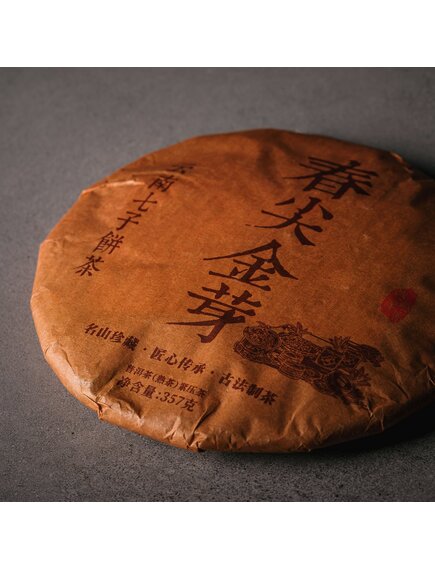 春尖金芽
云南七子餅茶
名山珍藏·匠心传承·古法制茶
普洱茶(熟茶)紧压茶
净含量:357克